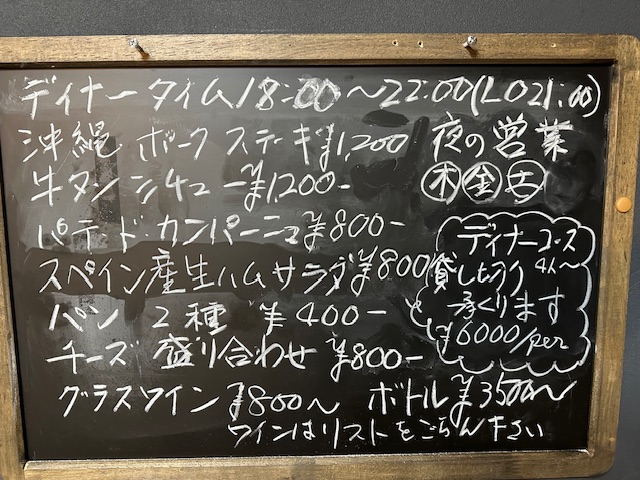 ディナータイム18:00〜22:00(LO21:00)
沖縄ポークステーキ¥1,200
牛タンシチュー¥1,200-
パテ・ド・カンパーニュ¥800-
スペイン産生ハムサラダ¥800
パン2種 ¥400-
チーズ盛り合わせ ¥800-
グラスワイン ¥800〜 ボトル¥3500〜
ワインはリストをごらん下さい
夜の営業
木金土
ディナーコース
貸し切り 4人〜
承くります
¥6000/per